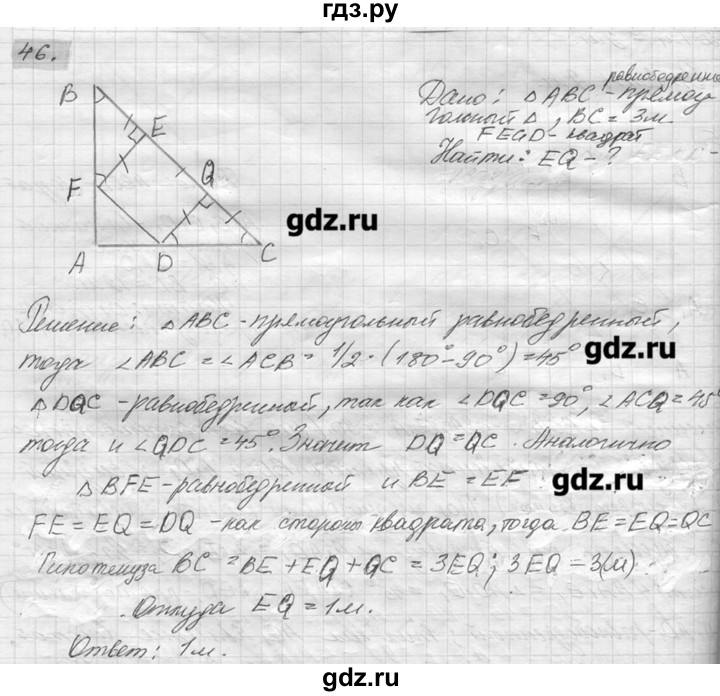 гдз.ру
46.
B
E
F
Q
A
D
C
равнобедренны
Дано: △ABC - прямоу
гольный △, BC = 3м
FEQD - квадрат
Найти: EQ - ?
gdz.ru
Решение: △ABC - прямоугольный равнобедренный,
тогда ∠ABC = ∠ACB = 1/2 · (180° - 90°) = 45°
gdz.ru
△DQC - равнобедренный, так как ∠DQC = 90°, ∠ACQ = 45°
тогда и ∠QDC = 45°. Значит DQ = QC. Аналогично
△BFE - равнобедренной и BE = EF
gdz.ru
FE = EQ = DQ - как стороны квадрата, тогда BE = EQ = QC
Гипотенуза BC = BE + EQ + QC = 3EQ; 3EQ = 3(м)
Откуда EQ = 1м.
Ответ: 1м.
gdz.ru